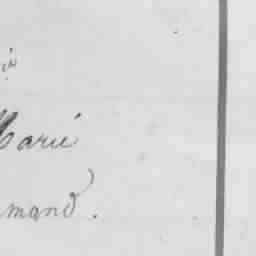 Marie
mand.